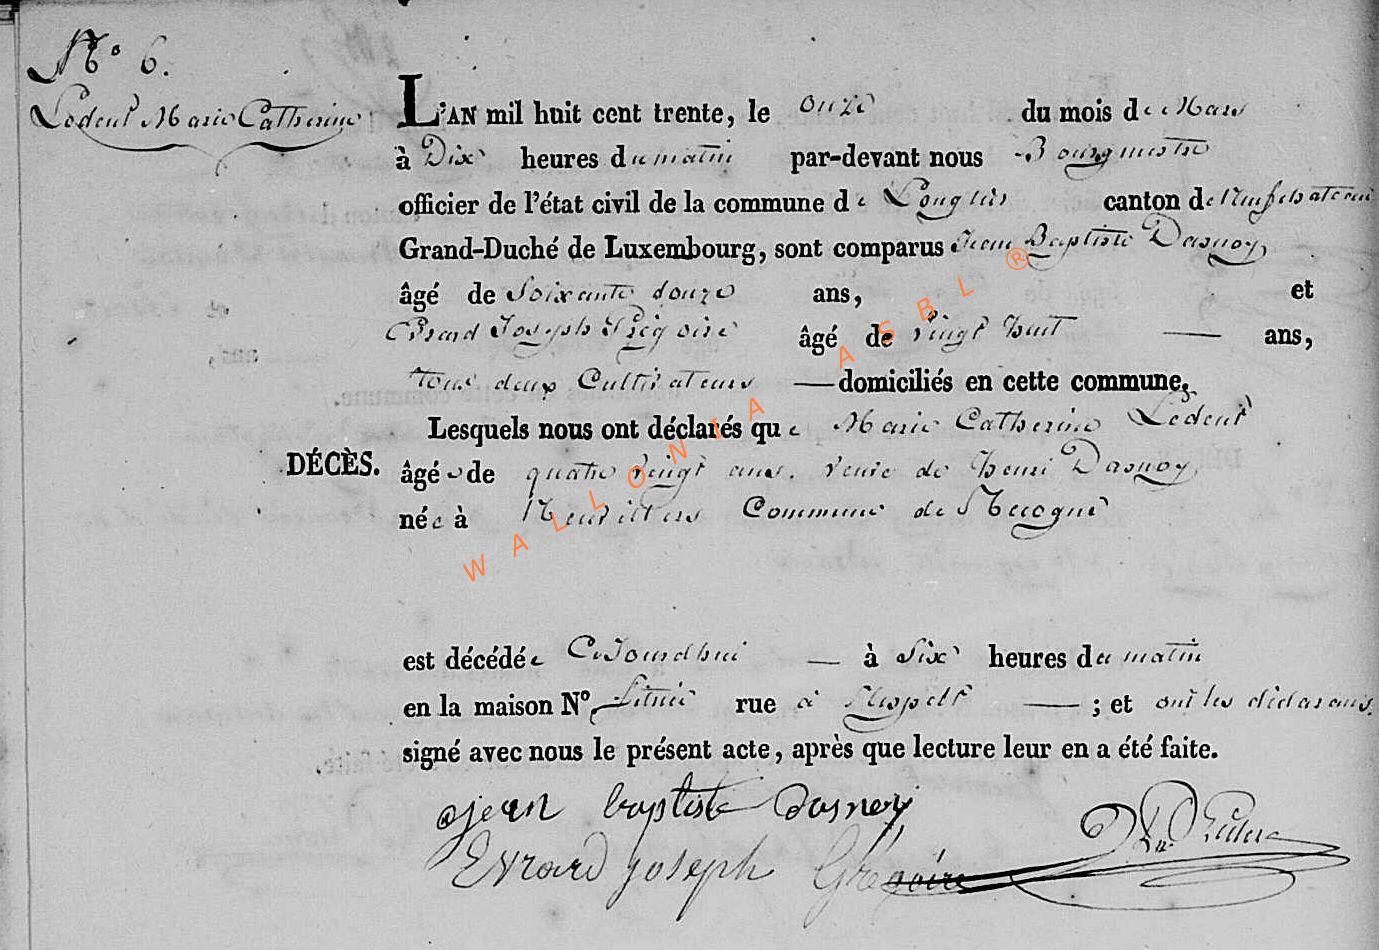 N.o 6.
Ledent Marie Catherine
L'AN mil huit cent trente, le onze du mois de Mars
à Dix heures du matin par-devant nous Bourgmestre
officier de l'état civil de la commune de Longlier canton de Neufchateau
Grand-Duché de Luxembourg, sont comparus Jean Baptiste Dasnoy,
âgé de Soixante douze ans, et
Evrard Joseph Grégoire âgé de vingt huit — ans,
tous deux Cultivateurs — domiciliés en cette commune,
Lesquels nous ont déclarés que Marie Catherine Ledent
DÉCÈS.
âgée de quatre vingt ans. veuve de henri Dasnoy,
née à Neuvillers Commune de Recogne
est décédée Cejourdhui — à Six heures du matin
en la maison N.o Située rue à Massul — ; et ont les déclarans
signé avec nous le présent acte, après que lecture leur en a été faite.
jean baptiste Dasnoy
Evrard joseph Grégoire
WALLONIA ASBL ®